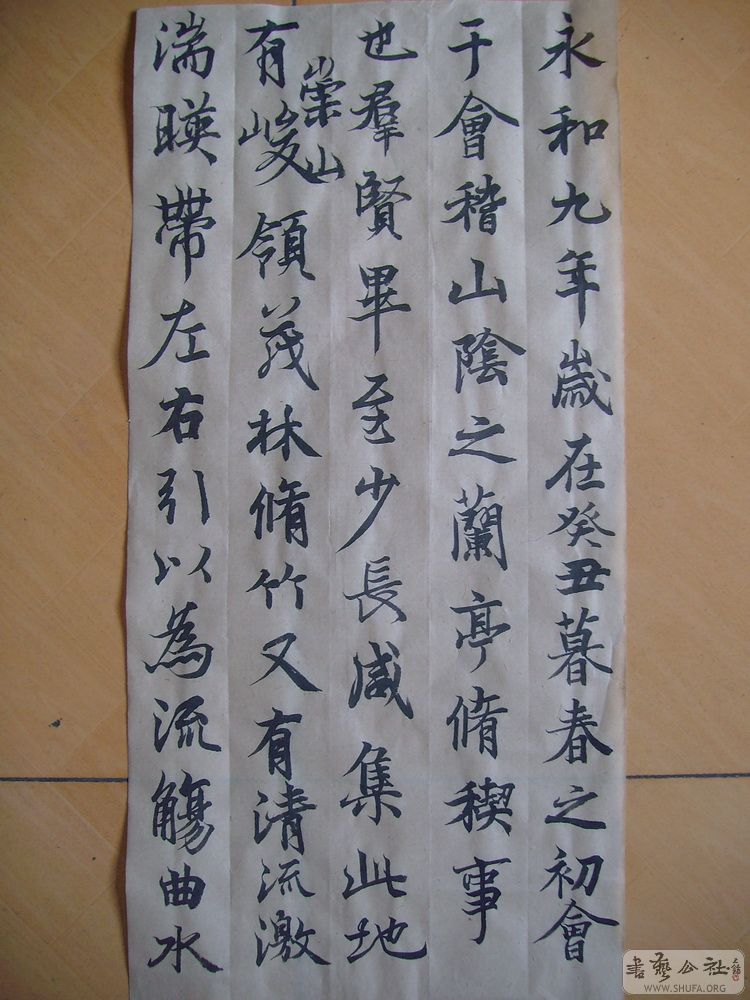 永和九年歲在癸丑暮春之初會
于會稽山陰之蘭亭脩稧事
也羣賢畢至少長咸集此地
有崇山峻領茂林脩竹又有清流激
湍暎帶左右引以為流觴曲水
書藝公社
WWW.SHUFA.ORG